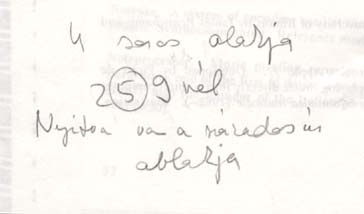 4 soros ablakja
259 nél
Nyitva van a százados úr
ablakja